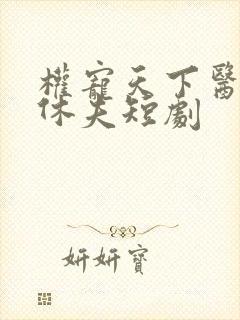 權寵天下醫
休夫短劇
妍妍寶